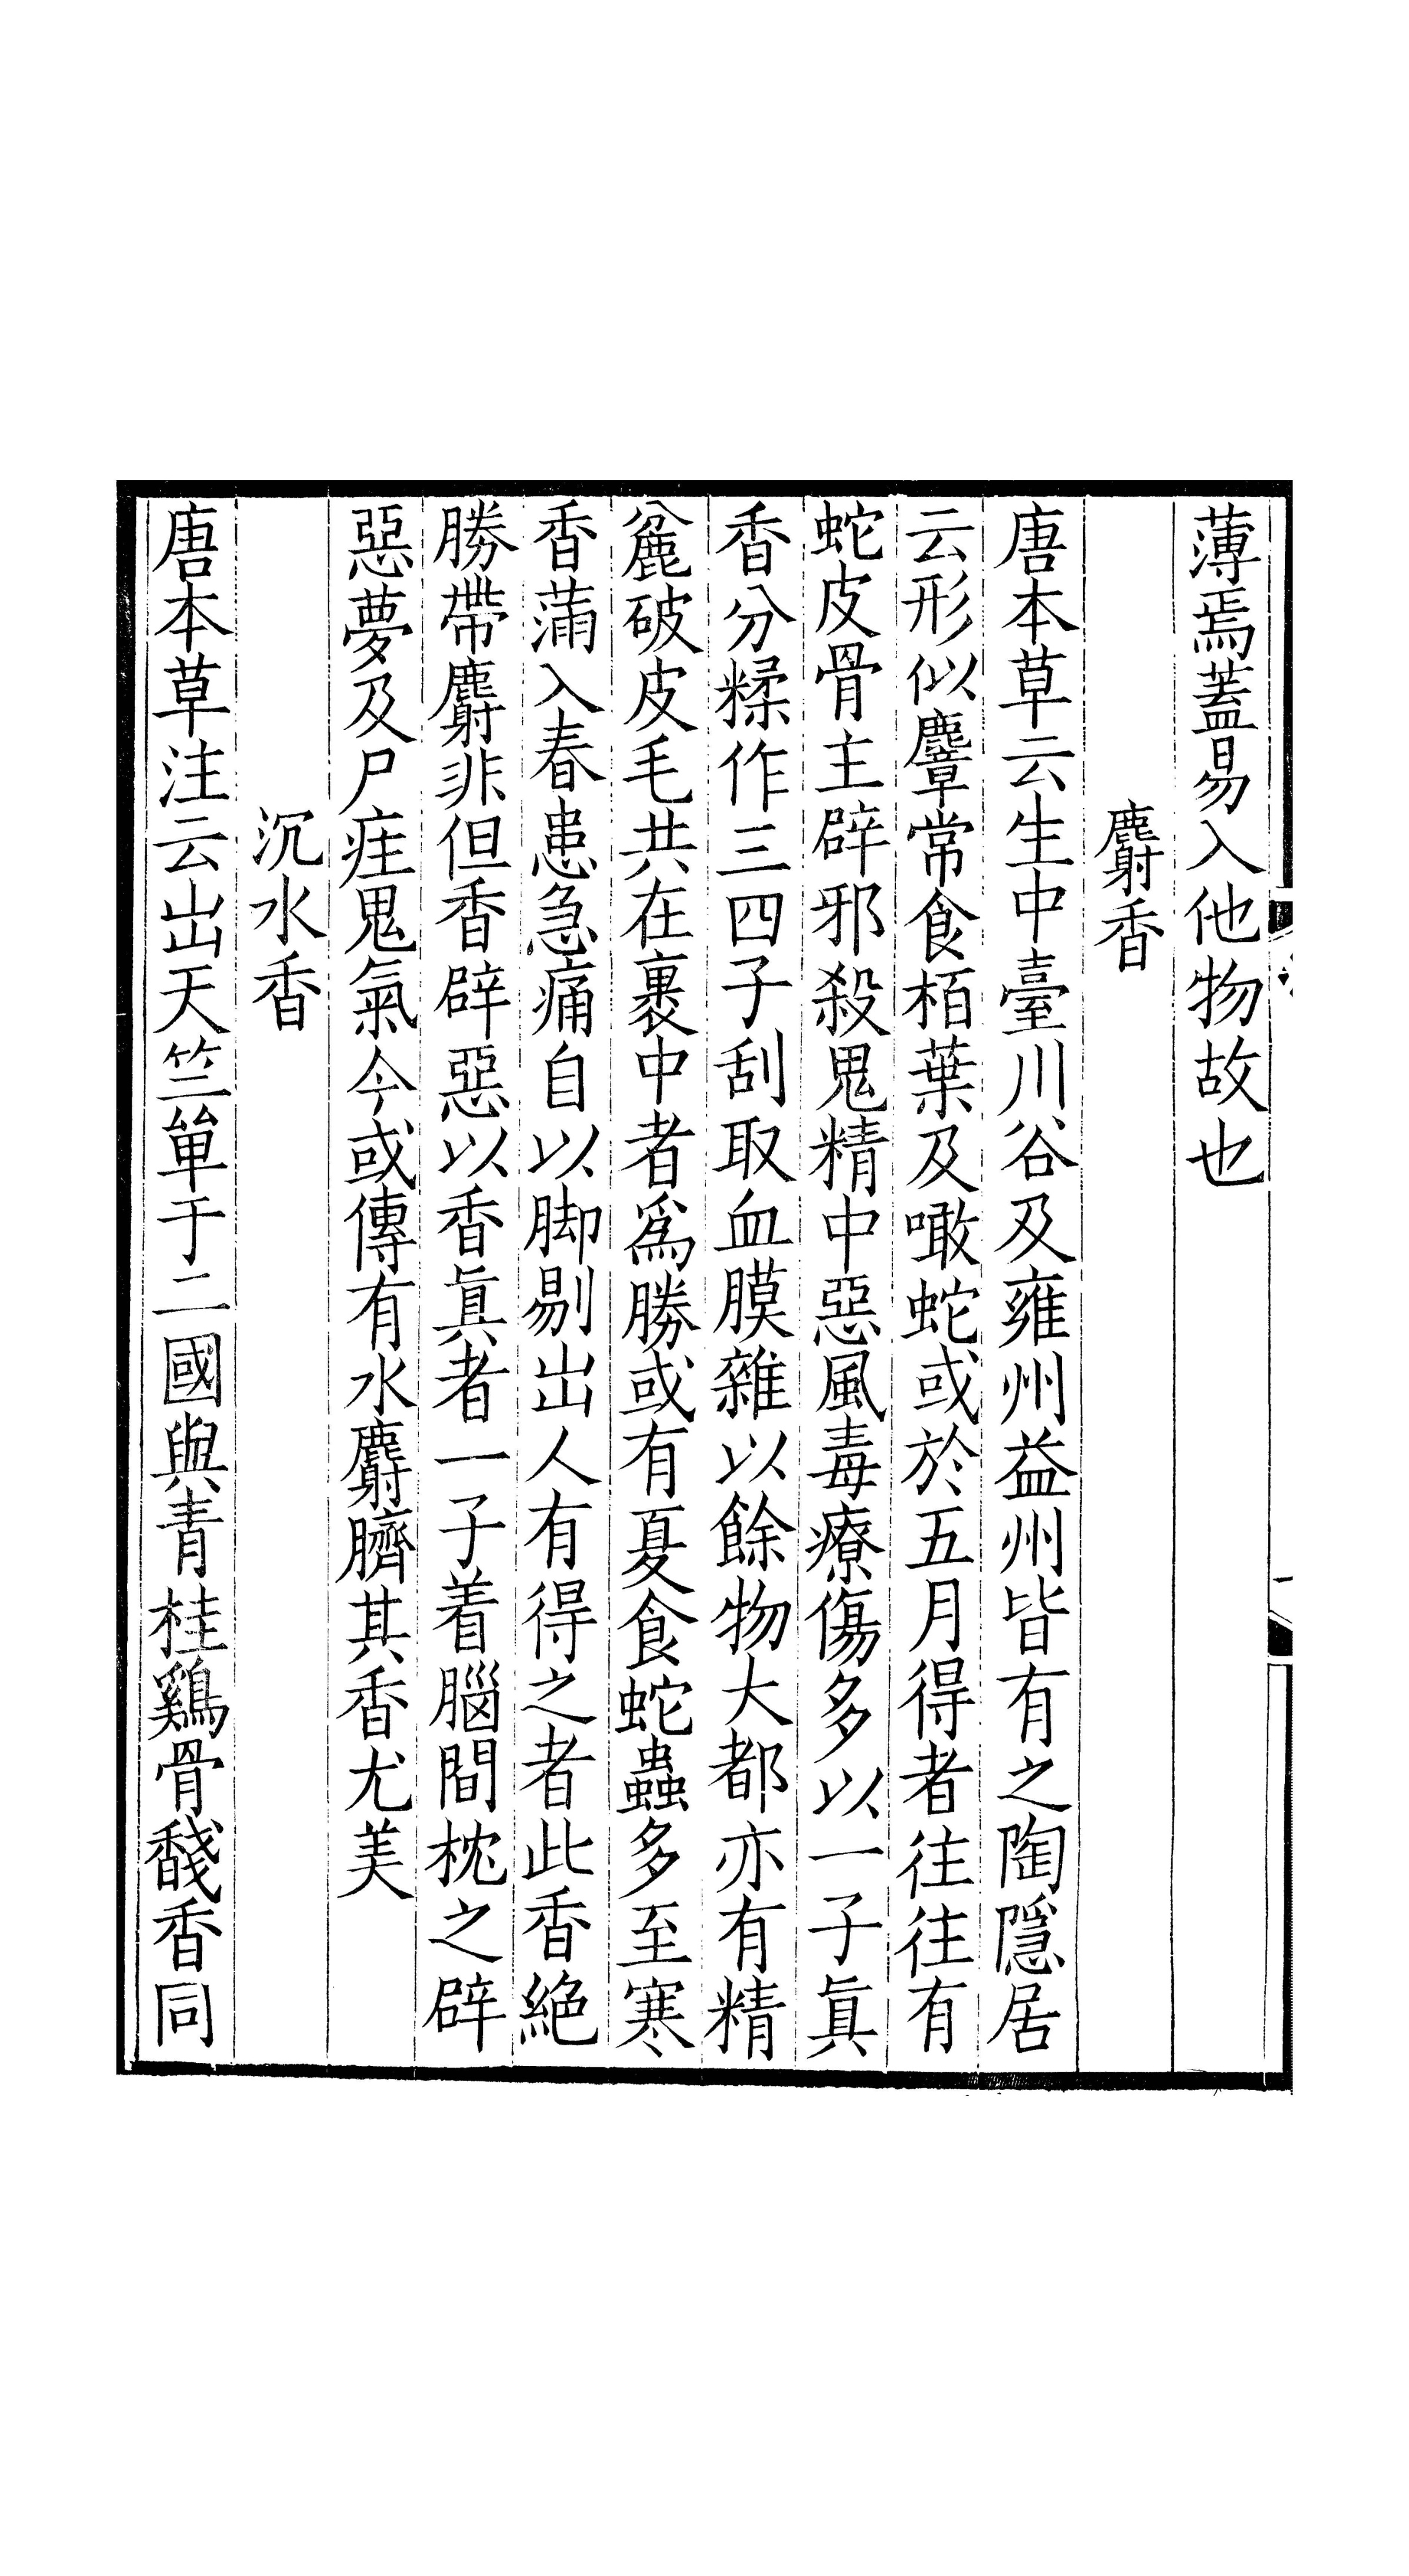 薄焉蓋易入他物故也
麝香
唐本草云生中臺川谷及雍州益州皆有之陶隱居
云形似麞常食栢葉及噉蛇或於五月得者往往有
蛇皮骨主辟邪殺鬼精中惡風毒療傷多以一子眞
香分糅作三四子刮取血膜雜以餘物大都亦有精
麄破皮毛共在裹中者爲勝或有夏食蛇蟲多至寒
香滿入春患急痛自以脚剔出人有得之者此香絶
勝帶麝非但香辟惡以香眞者一子着腦間枕之辟
惡夢及尸疰鬼氣今或傳有水麝臍其香尤美
沉水香
唐本草注云出天竺單于二國與青桂鷄骨馢香同